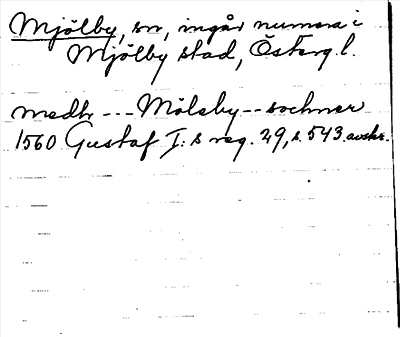 Mjölby, sn, ingår numera i
Mjölby stad, Österg l.
medh --- Mölsby -- sochner
1560 Gustaf I:s reg. 29, s. 543. avskr.